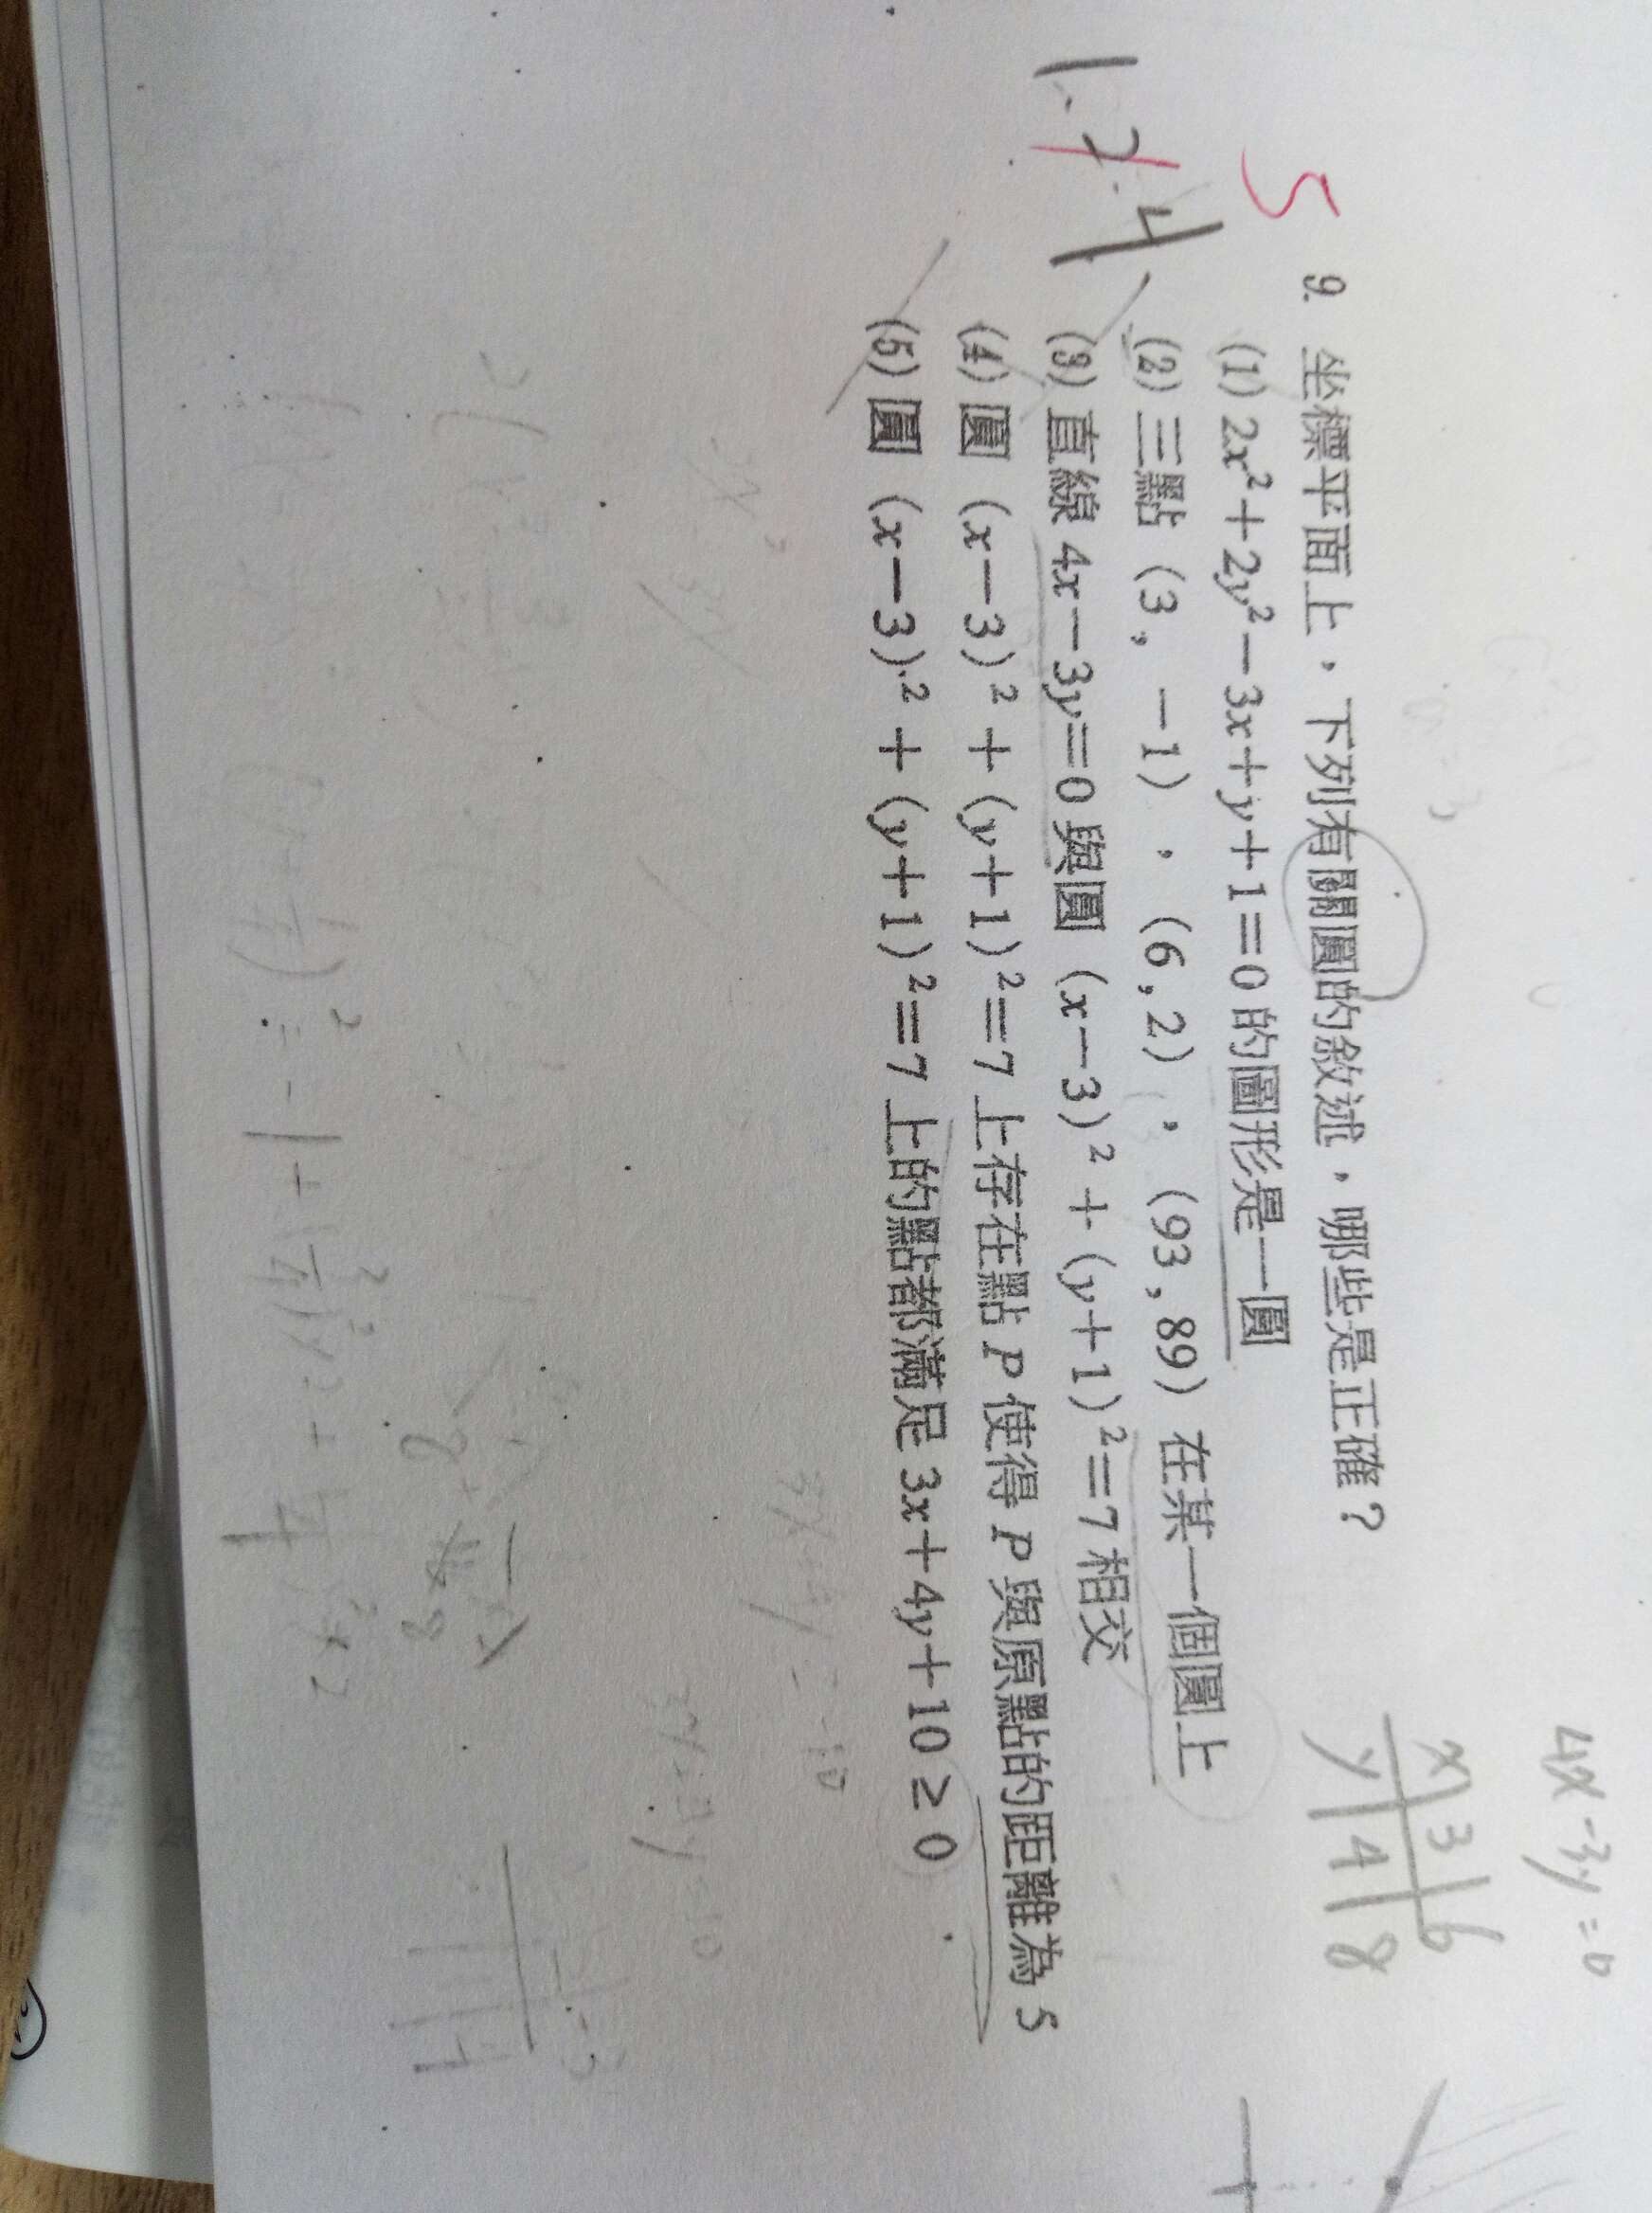 5
1.2.4
9. 坐標平面上，下列有關圓的敘述，哪些是正確？
(1) 2x²+2y²－3x＋y＋1＝0 的圖形是一圓
(2) 三點 (3, －1)，(6, 2)，(93, 89) 在某一個圓上
(3) 直線 4x－3y＝0 與圓 (x－3)²＋(y＋1)²＝7 相交
(4) 圓 (x－3)²＋(y＋1)²＝7 上存在點 P 使得 P 與原點的距離為 5
(5) 圓 (x－3)²＋(y＋1)²＝7 上的點都滿足 3x＋4y＋10 ≥ 0
4x-3y=0
x 3 6
y 4 8